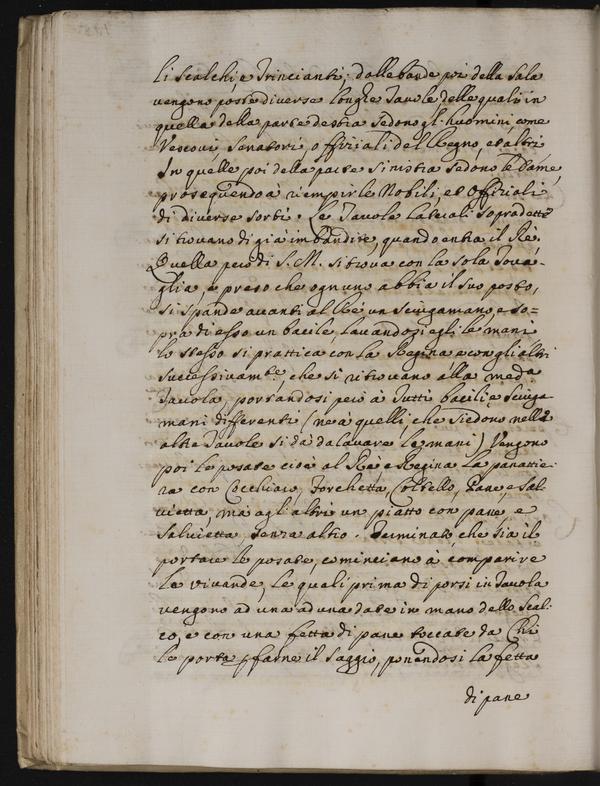 li Scalchi, e Trincianti; dalle bande poi della Sala
vengono poste diverse longhe Tavole delle quali in
quella della parte destra Sedono gl'huomini, come
Vescovi, Senatori, Offiziali del Regno, et altri
In quelle poi della parte sinistra sedono le Dame,
proseguendo à riempirle Nobili, et Offiziali
di diverse sorti. Le Tavole laterali sopradette
si trovano di già imbandite, quando entra il Rè,
Quella però di S. M. si trova con la sola Tova-
glia, e preso che ogn uno abbia il suo posto,
si spande avanti al Rè un Sciugamano, e so=
pra di esso un bacile, lavandosi egli le mani
lo stesso si prattica con la Regina e con gli altri
successivam.te, che si ritrovano alla med.a
Tavola, portandosi però à Tutti bacili, e Sciuga
mani differenti (ne à quelli che siedono nelle
altre Tavole si dà da lavare le mani) Vengono
poi le posate cioè al Rè, e Regina la panattie-
ra con Cocchiaro, Forchetta, Coltello, Pane, e Sal-
vietta, mà agl'altri un piatto con pane, e
Salvietta senza altro. Terminato, che sia il
portare le posate, cominciano à comparire
le vivande, le quali prima di porsi in Tavola
vengono ad una ad una date in mano dello Scal-
co, e con una fetta di pane toccate da Chi
le porta p farne il Saggio, ponendosi la fetta
di pane